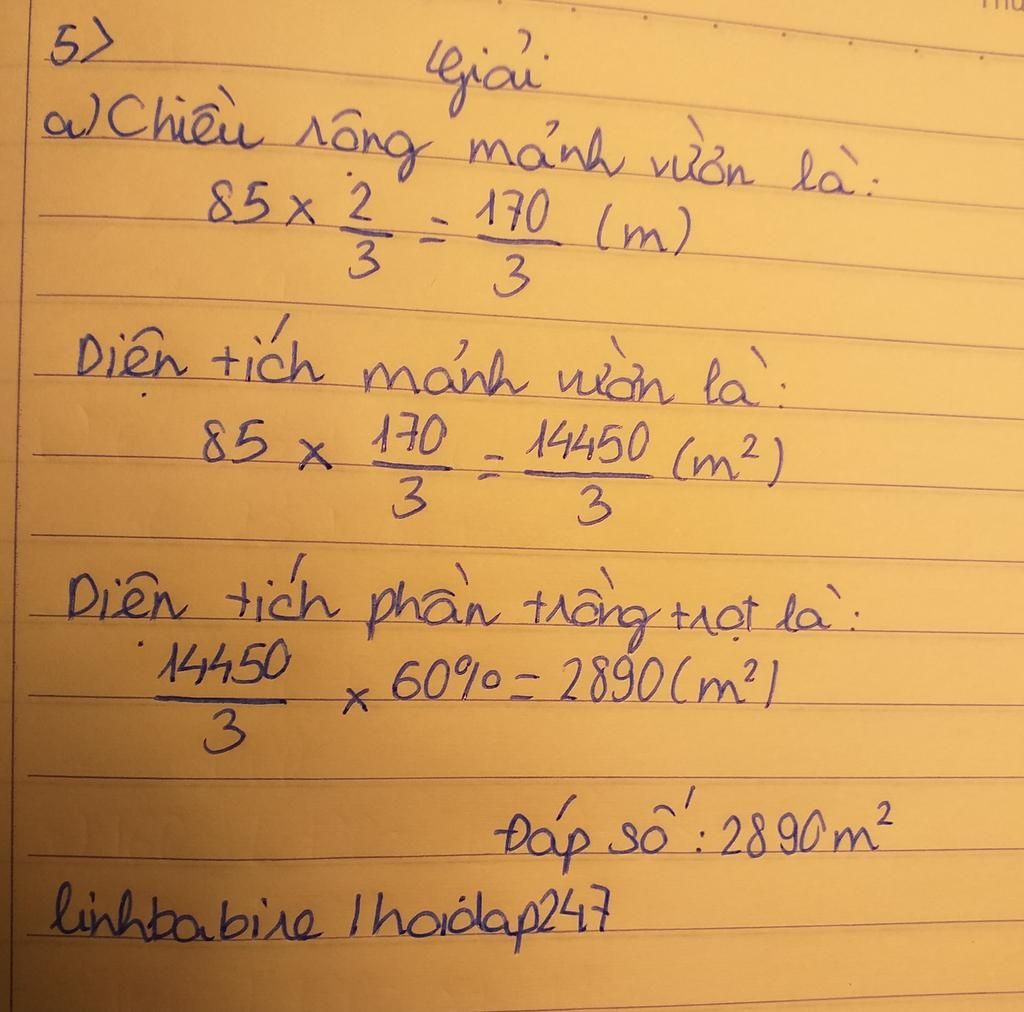 5>
Giải
a) Chiều rộng mảnh vườn là:
85 x 2/3 = 170/3 (m)
Diện tích mảnh vườn là:
85 x 170/3 = 14450/3 (m²)
Diện tích phần trồng trọt là:
14450/3 x 60% = 2890 (m²)
Đáp số: 2890m²
linhbabire / hoidap247